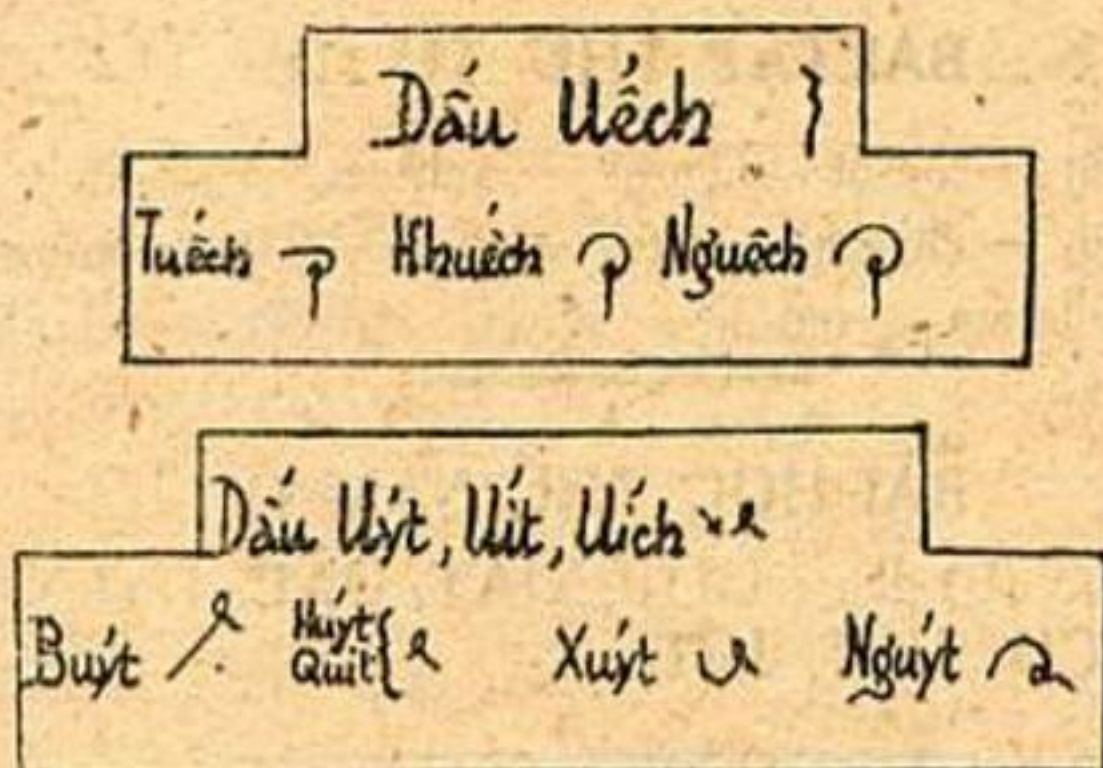 Dấu Uếch
Tuếch Khuếch Nguệch
Dấu Uýt, Uít, Uích
Buýt Huýt Xuýt Nguýt
Quít